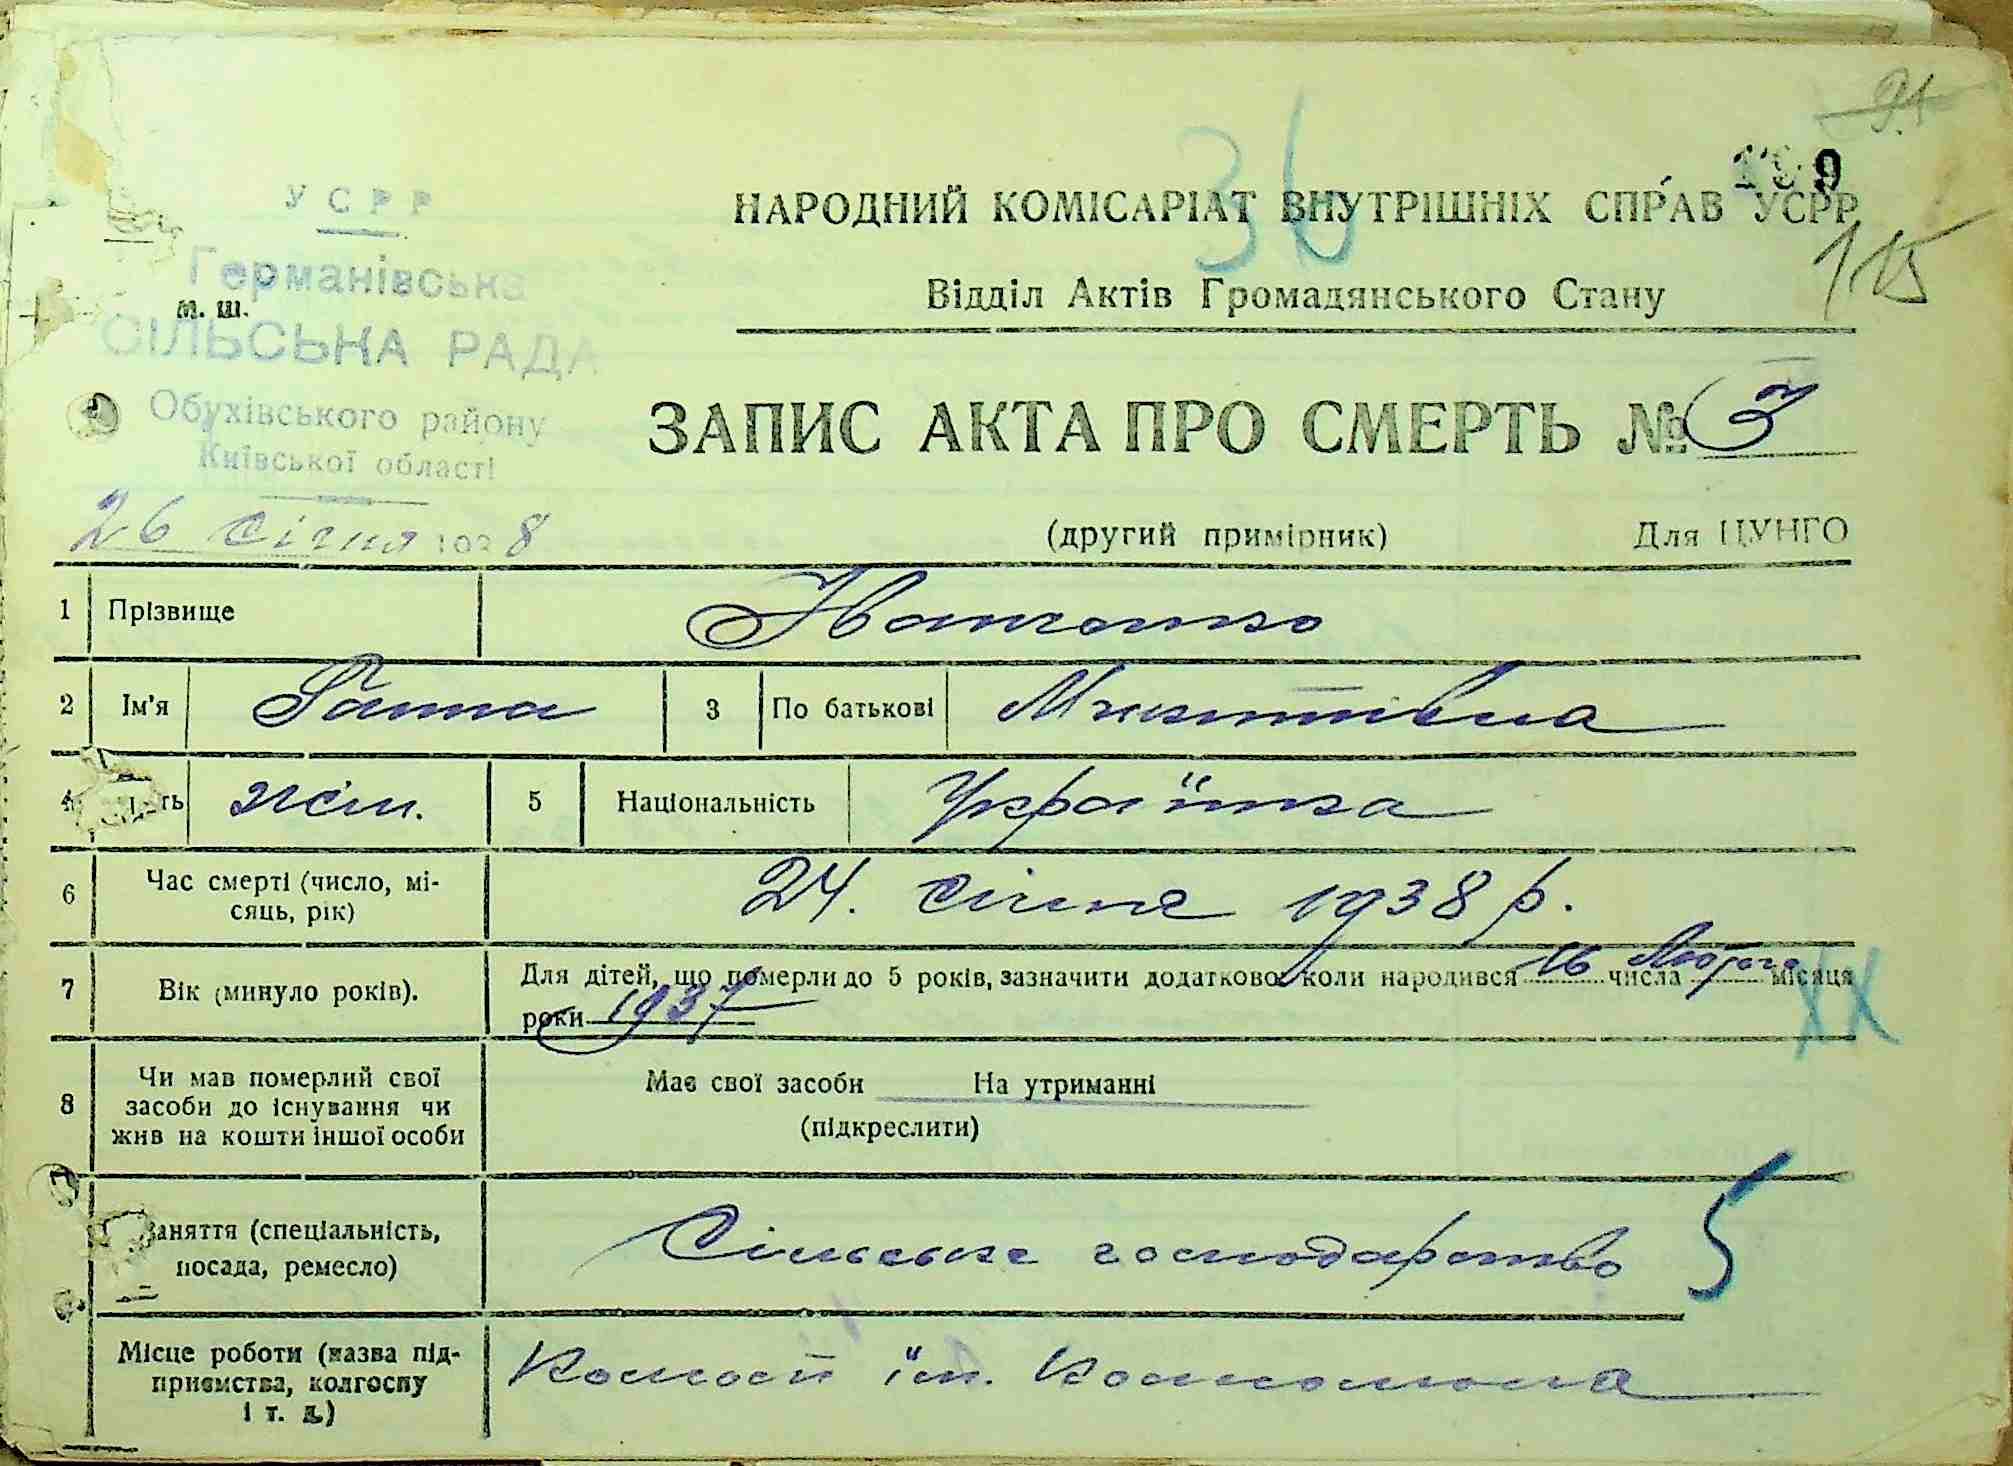 91
199
36
115
УСРР
Германівська
СІЛЬСЬКА РАДА
Обухівського району
Київської області
м. ш.
НАРОДНИЙ КОМІСАРІАТ ВНУТРІШНІХ СПРАВ УСРР
Відділ Актів Громадянського Стану
ЗАПИС АКТА ПРО СМЕРТЬ № 3
26 січня 1938
(другий примірник) Для ЦУНГО
1 Прізвище Іванченко
2 Ім'я Ганна 3 По батькові Микитівна
4 жін. 5 Національність Українка
6 Час смерті (число, мі-
сяць, рік) 24. січня 1938 р.
7 Вік (минуло років). Для дітей, що померли до 5 років, зазначити додатково коли народився 16 числа Лютого місяця
роки 1937
XX
8 Чи мав померлий свої
засоби до існування чи
жив на кошти іншої особи
Має свої засоби На утриманні
(підкреслити)
Заняття (спеціальність,
посада, ремесло) Сільське господарство 5
Місце роботи (назва під-
приємства, колгоспу
і т. д.) ім.